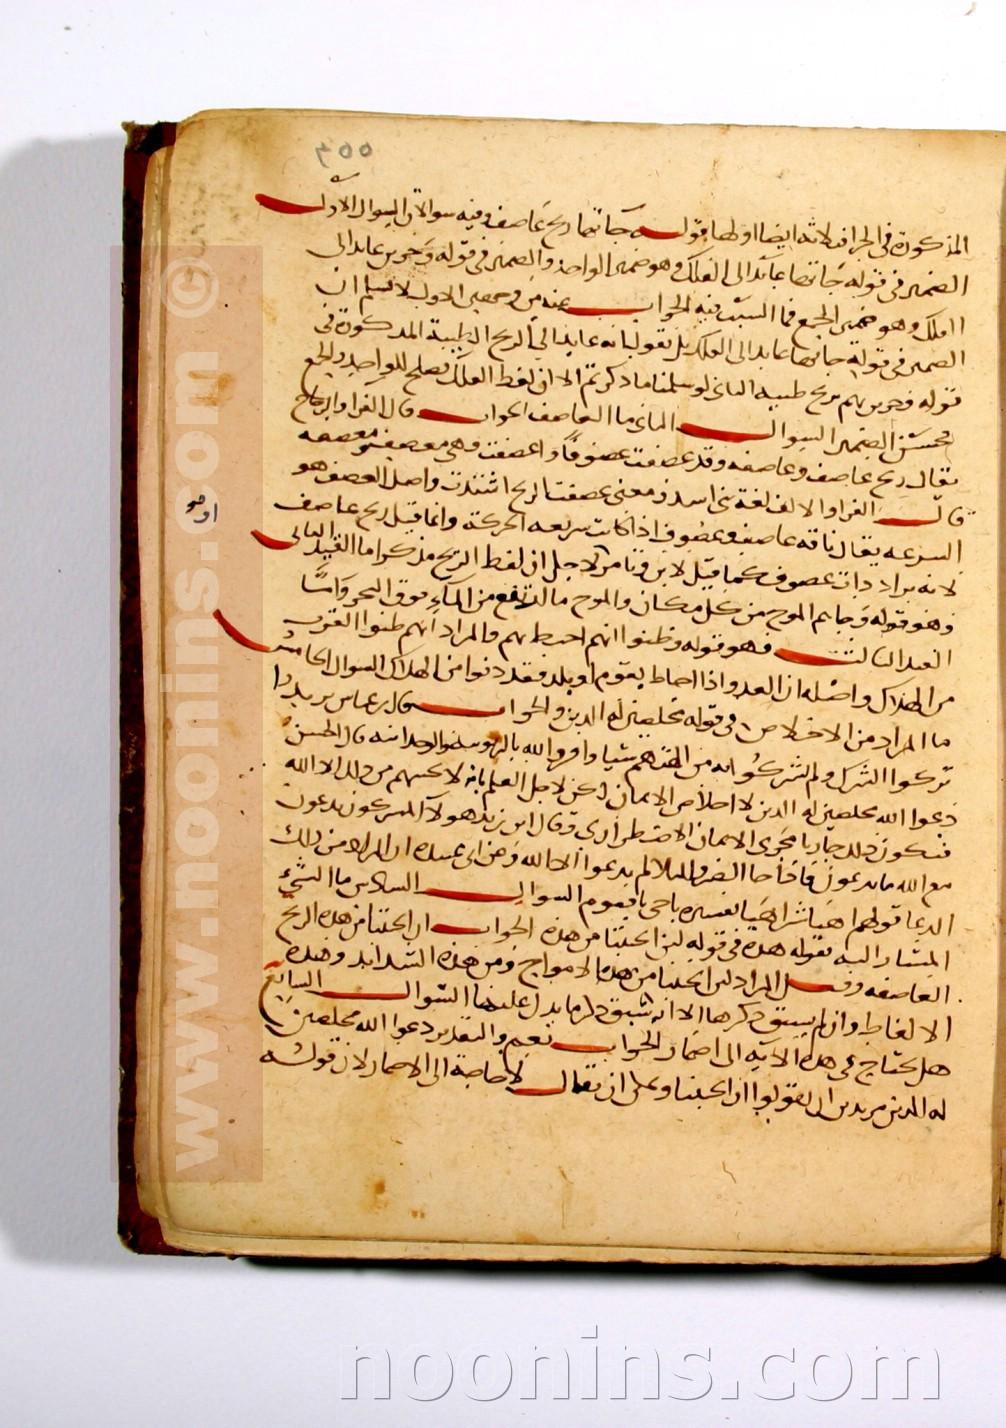 ٣٥٥
المذكورة في الجزاء فثلاثة ايضا اولها قوله جاتها ريح عاصف وفيه سوالات السوال الاول
الضمير في قوله جاتها عايد الى الفلك وهو ضمير الواحد والضمير في قوله وجرين بهم عايد الى
الفلك وهو ضمير الجمع فما السبب فيه الجواب عنه من وجهين الاول لا نسلم ان
الضمير في قوله جاتها عايد الى الفلك بل نقول انه عايد الى الريح الطيبة المذكورة في
قوله وجرين بهم بريح طيبه الثاني لو سلمنا ما ذكرتم الا ان لفظ الفلك يصلح للواحد والجمع
فحسن الضمير السوال الثاني ما العاصف الجواب قال الفرا والزجاج
يقال ريح عاصف وعاصفه وقد عصفت عصوفا واعصفت وهي معصف ومعصفه
قال الفرا والالف لغة بني اسد ومعنى عصفت الريح اشتدت واصل العصف هو
السرعه يقال ناقه عاصف وعصوف اذا كانت سريعه الحركة وانما قيل ريح عاصف
او هو
لانه يراد ذات عصوف كما قيل لابن وتامر لاجل ان لفظ الريح مذكر اما القيد الثاني
فهو قوله وجاهم الموج من كل مكان والموج ما ارتفع من الماء فوق البحر واما
القيد الثالث فهو قوله وظنوا انهم احيط بهم والمراد انهم ظنوا القرب
من الهلاك واصله ان العدو اذا احاط بقوم او بلد فقد دنوا من الهلاك السوال الخامس
ما المراد من الاخلاص في قوله مخلصين له الدين والجواب قال ابن عباس يريد
تركوا الشرك ولم يشركوا به من الهتهم شيا واقروا لله بالربوبيه والوحدانيه قال الحسن
دعوا الله مخلصين له الدين لا اخلاص الايمان لكن لاجل العلم بانه لا ينجيهم من ذلك الا الله
فيكون ذلك جاريا مجرى الايمان الاضطراري وقال ابن زيد هولا المشركون يدعون
مع الله ما يدعون فاذا جا الضر والبلا لم يدعوا الا الله وعن ابي عبيده ان المراد من ذلك
الدعا قولهم اهيا شراهيا تفسيره يا حي يا قيوم السوال السادس ما الشيء
المشار اليه بقوله هذه في قوله لئن انجيتنا من هذه الجواب ان انجيتنا من هذه الريح
العاصفه وقيل المراد لئن انجيتنا من هذه الامواج ومن هذه الشدايد وهذه
الالفاظ وان لم يسبق ذكرها الا انه سبق ذكر ما يدل عليها السوال السابع
هل يحتاج في هذه الآية الى اضمار الجواب نعم والتقدير دعوا الله مخلصين
له الدين مريدين ان يقولوا ان انجيتنا ويمكن ان يقال لا حاجة الى الاضمار لان قوله
www.noonins.com ©
noonins.com